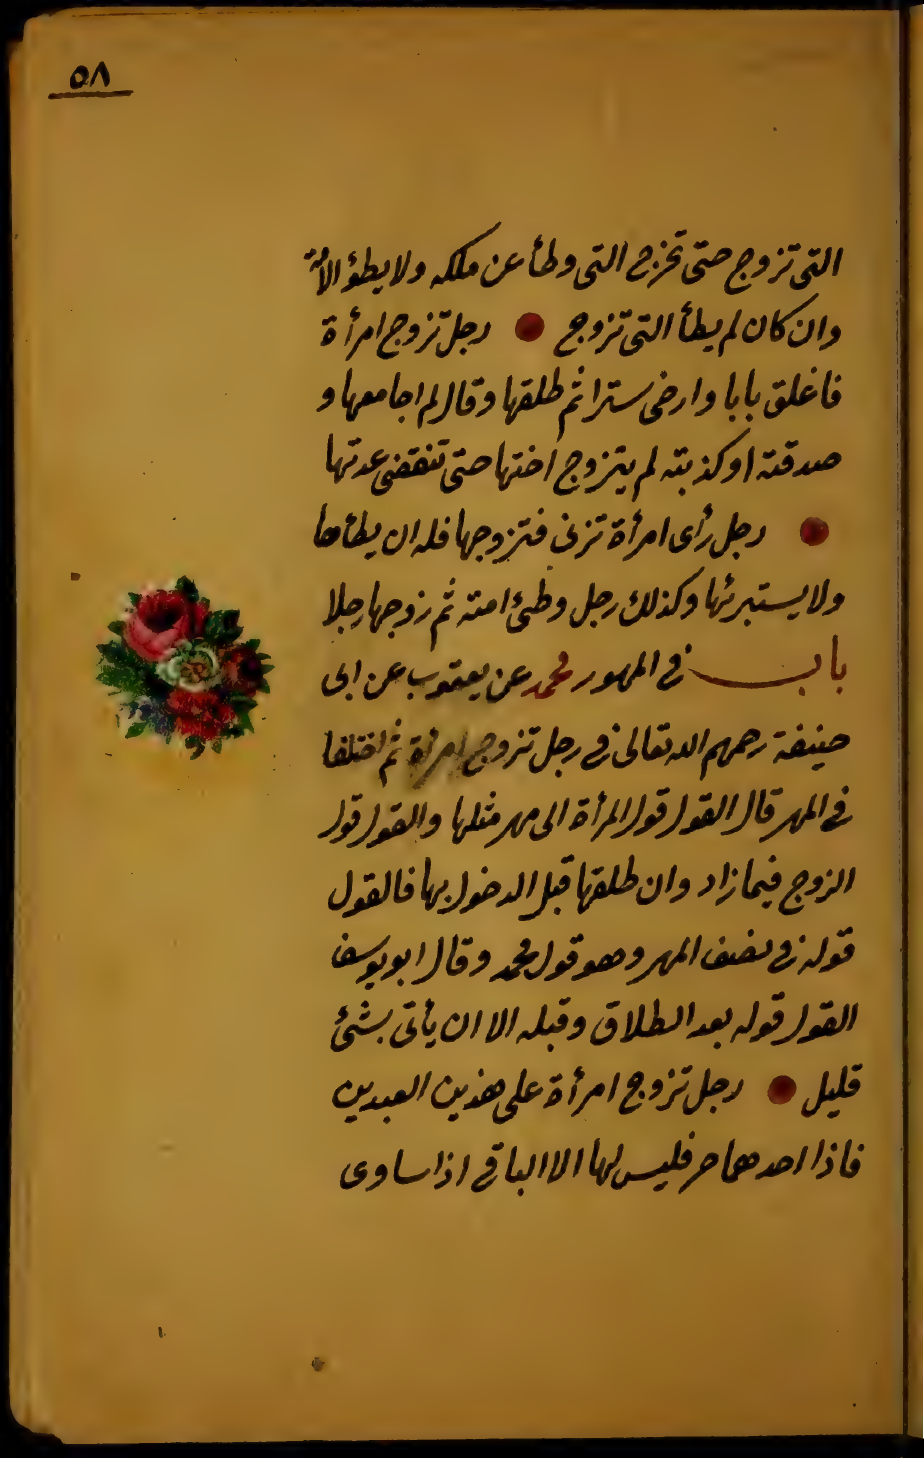 ٥٨
التى تزوج حتى تخرج التى وطأ عن ملكه ولا يطؤ الأمة
وان كان لم يطأ التى تزوج رجل تزوج امرأة
فاغلق بابا وارخى سترا ثم طلقها وقال لم اجامعها و
صدقته او كذبته لم يتزوج اختها حتى تنقضى عدتها
رجل رأى امرأة تزنى فتزوجها فله ان يطأها
ولا يستبرئها وكذلك رجل وطئ امته ثم زوجها رجلا
باب في المهور محمد عن يعقوب عن ابى
حنيفة رحمهم الله تعالى في رجل تزوج امرأة ثم اختلفا
في المهر قال القول قول المرأة الى مهر مثلها والقول قول
الزوج فيما زاد وان طلقها قبل الدخول بها فالقول
قوله في نصف المهر وهو قول محمد وقال ابو يوسف
القول قوله بعد الطلاق وقبله الا ان يأتى بشئ
قليل رجل تزوج امرأة على هذين العبدين
فاذا احدهما حر فليس لها الا الباقي اذا ساوى